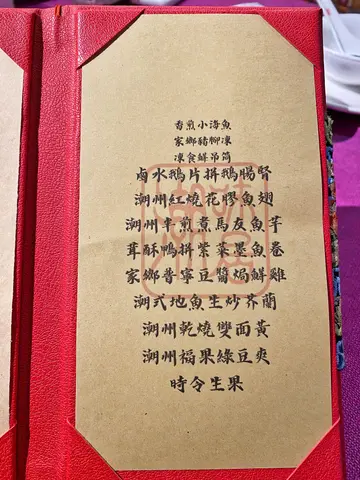 香煎小海魚
家鄉豬腳凍
凍食鮮吊筒
鹵水鵝片拼鵝腸腎
潮州紅燒花膠魚翅
潮州半煎煮馬友魚芊
茸酥鴨拼紫菜墨魚卷
家鄉普寧豆醬焗鮮雞
潮式地魚生炒芥蘭
潮州乾燒雙面黃
潮州福果綠豆爽
時令生果